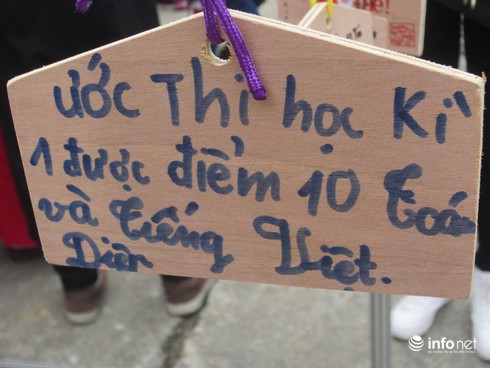 ước Thi học Kì
1 được điểm 10 Toán
và Tiếng Việt.
Diện
infonet